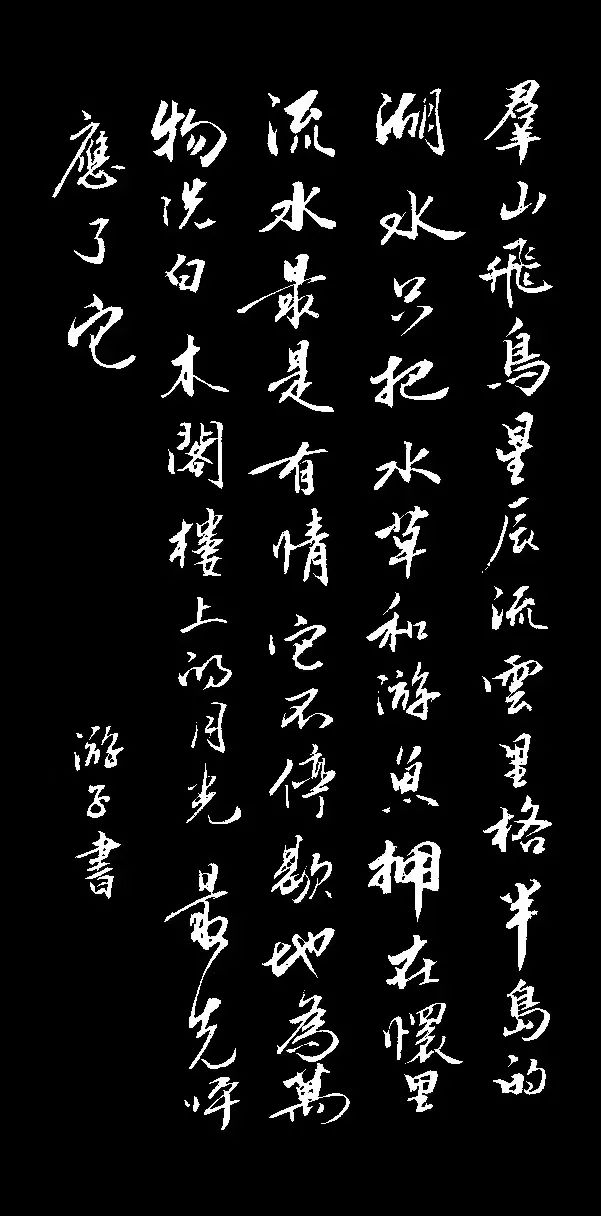 羣山飛鳥星辰流雲里格半島的
湖水只把水草和游魚拥在懷里
流水最是有情它不停歇地為萬
物洗白木閣樓上的月光最先呼
應了它
游子書